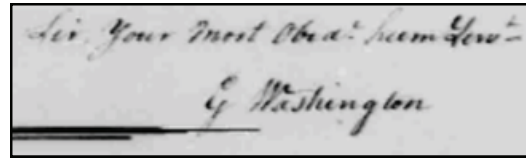 Sir Your Most Obed.t hum Serv.t
G Washington